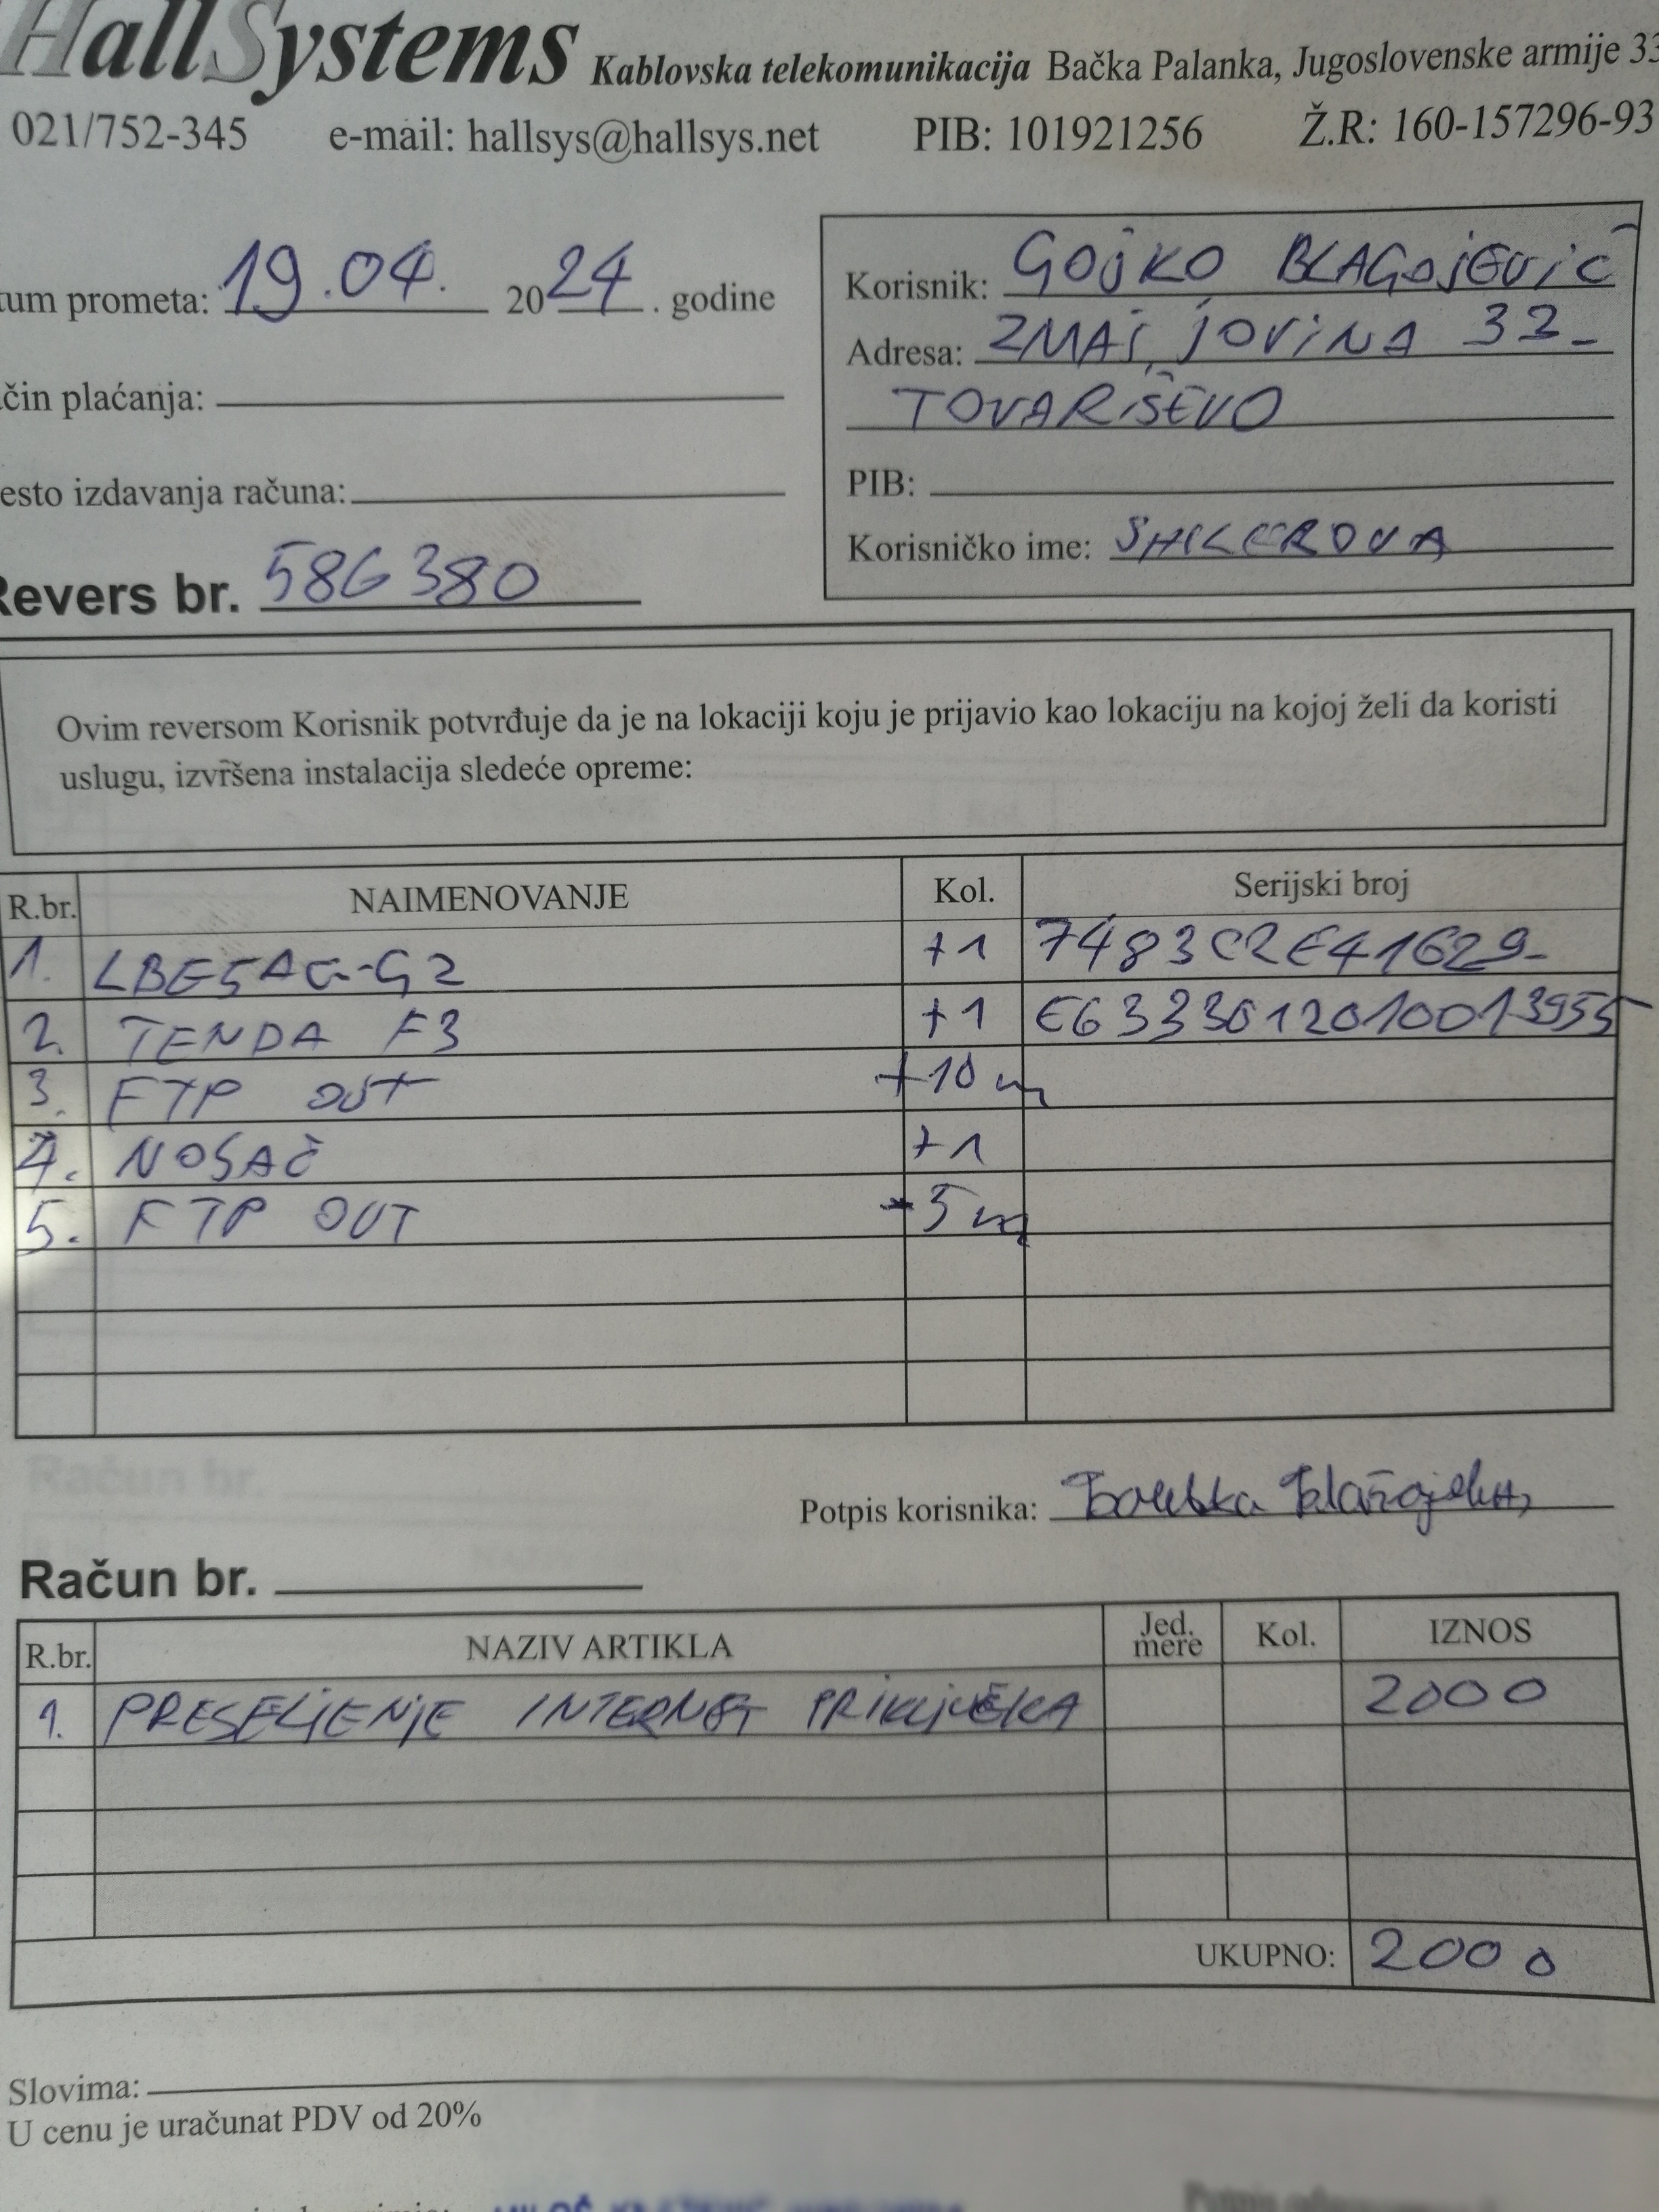 HallSystems Kablovska telekomunikacija Bačka Palanka, Jugoslovenske armije 33
021/752-345 e-mail: hallsys@hallsys.net PIB: 101921256 Ž.R: 160-157296-93
tum prometa: 19.04. 2024. godine
Korisnik: GOJKO BLAGOJEVIĆ
Adresa: ZMAJ JOVINA 32
TOVARIŠEVO
čin plaćanja:
esto izdavanja računa:
PIB:
Korisničko ime:
Revers br. 586380
Ovim reversom Korisnik potvrđuje da je na lokaciji koju je prijavio kao lokaciju na kojoj želi da koristi
uslugu, izvršena instalacija sledeće opreme:
R.br. NAIMENOVANJE Kol. Serijski broj
1. LBE5AC-G2 +1 7483C2E41629
2. TENDA F3 +1
3. FTP OUT +10 m
4. NOSAČ +1
5. FTP OUT -5 m
Račun br.
Potpis korisnika:
Račun br.
R.br. NAZIV ARTIKLA Jed. mere Kol. IZNOS
1. PRESELJENJE INTERNET PRIKLJUČKA 2000
UKUPNO: 2000
Slovima:
U cenu je uračunat PDV od 20%